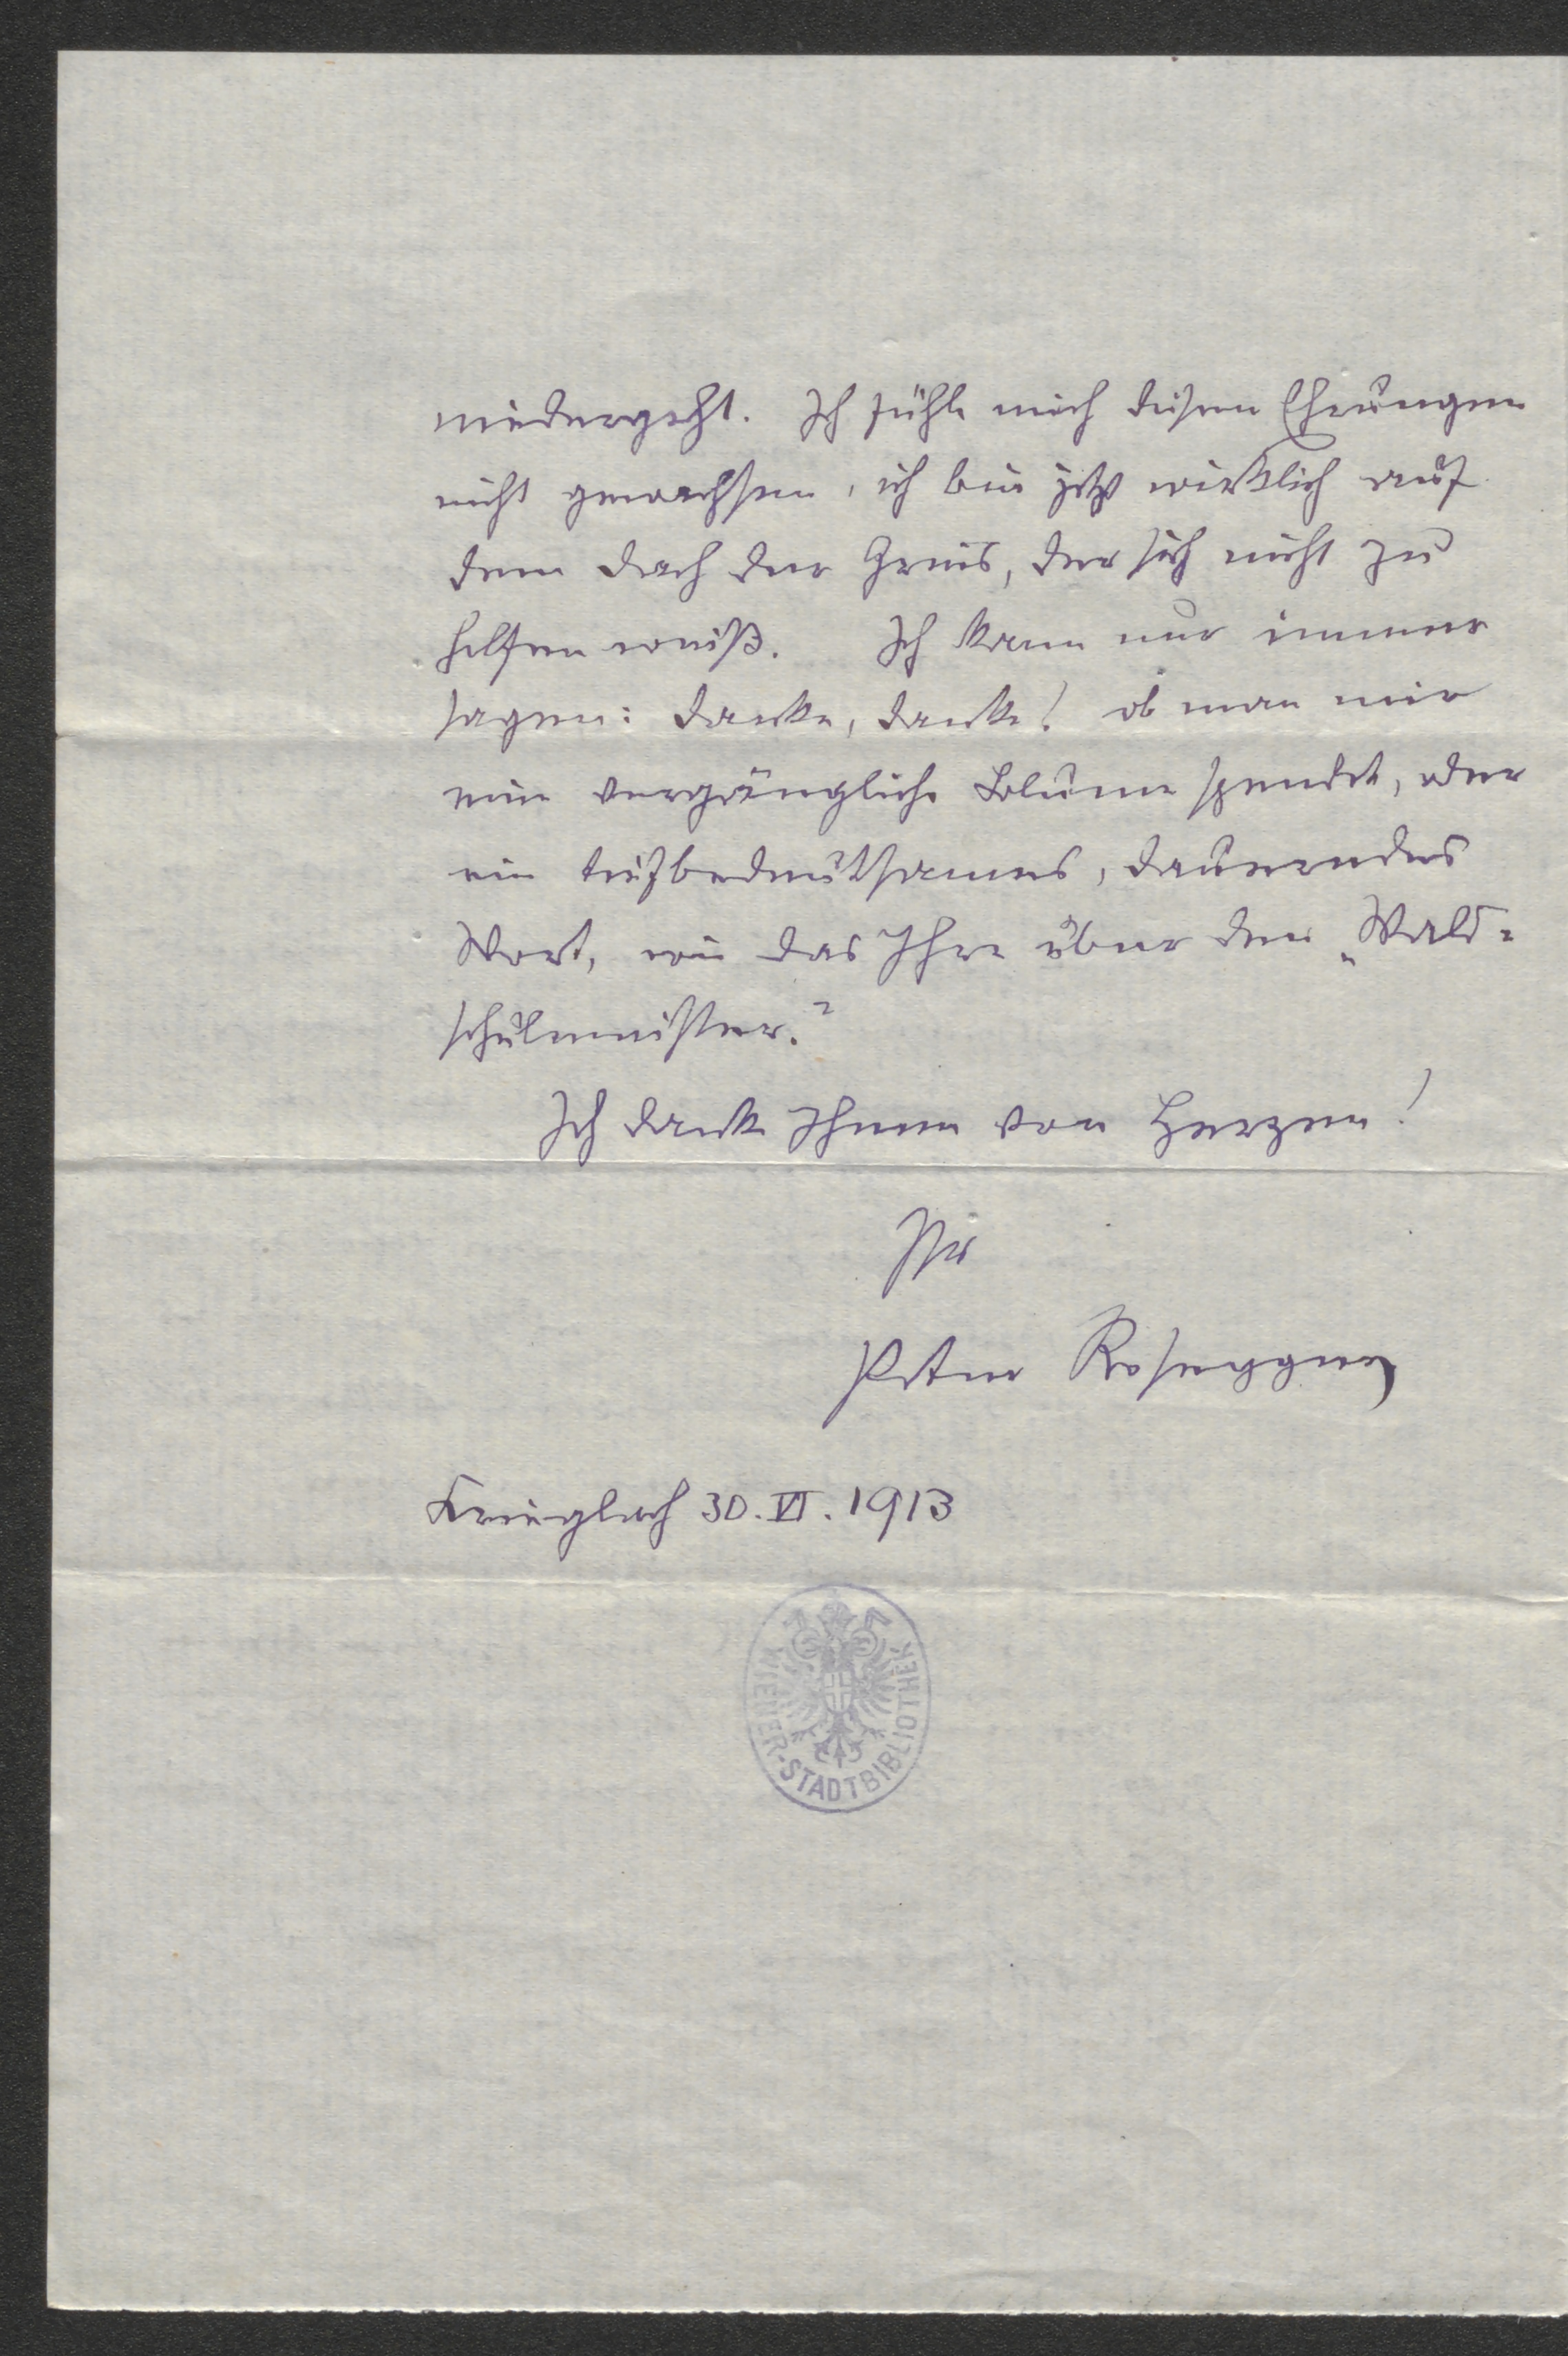 niedergeht. Ich fühle mich diesen Ehrungen
nicht gewachsen, ich bin jetzt wirklich auf
dem Dach der Greis, der sich nicht zu
helfen weiß. Ich kann nur immer
sagen: Danke, danke! ob man mir
eine vergängliche Blume spendet, oder
ein tiefbedeutsames, dauerndes
Wort, wie das Ihre über den „Wald-
schulmeister.“
Ich danke Ihnen von Herzen!
Ihr
Peter Rosegger
Krieglach 30. VI. 1913
WIENER-STADTBIBLIOTHEK